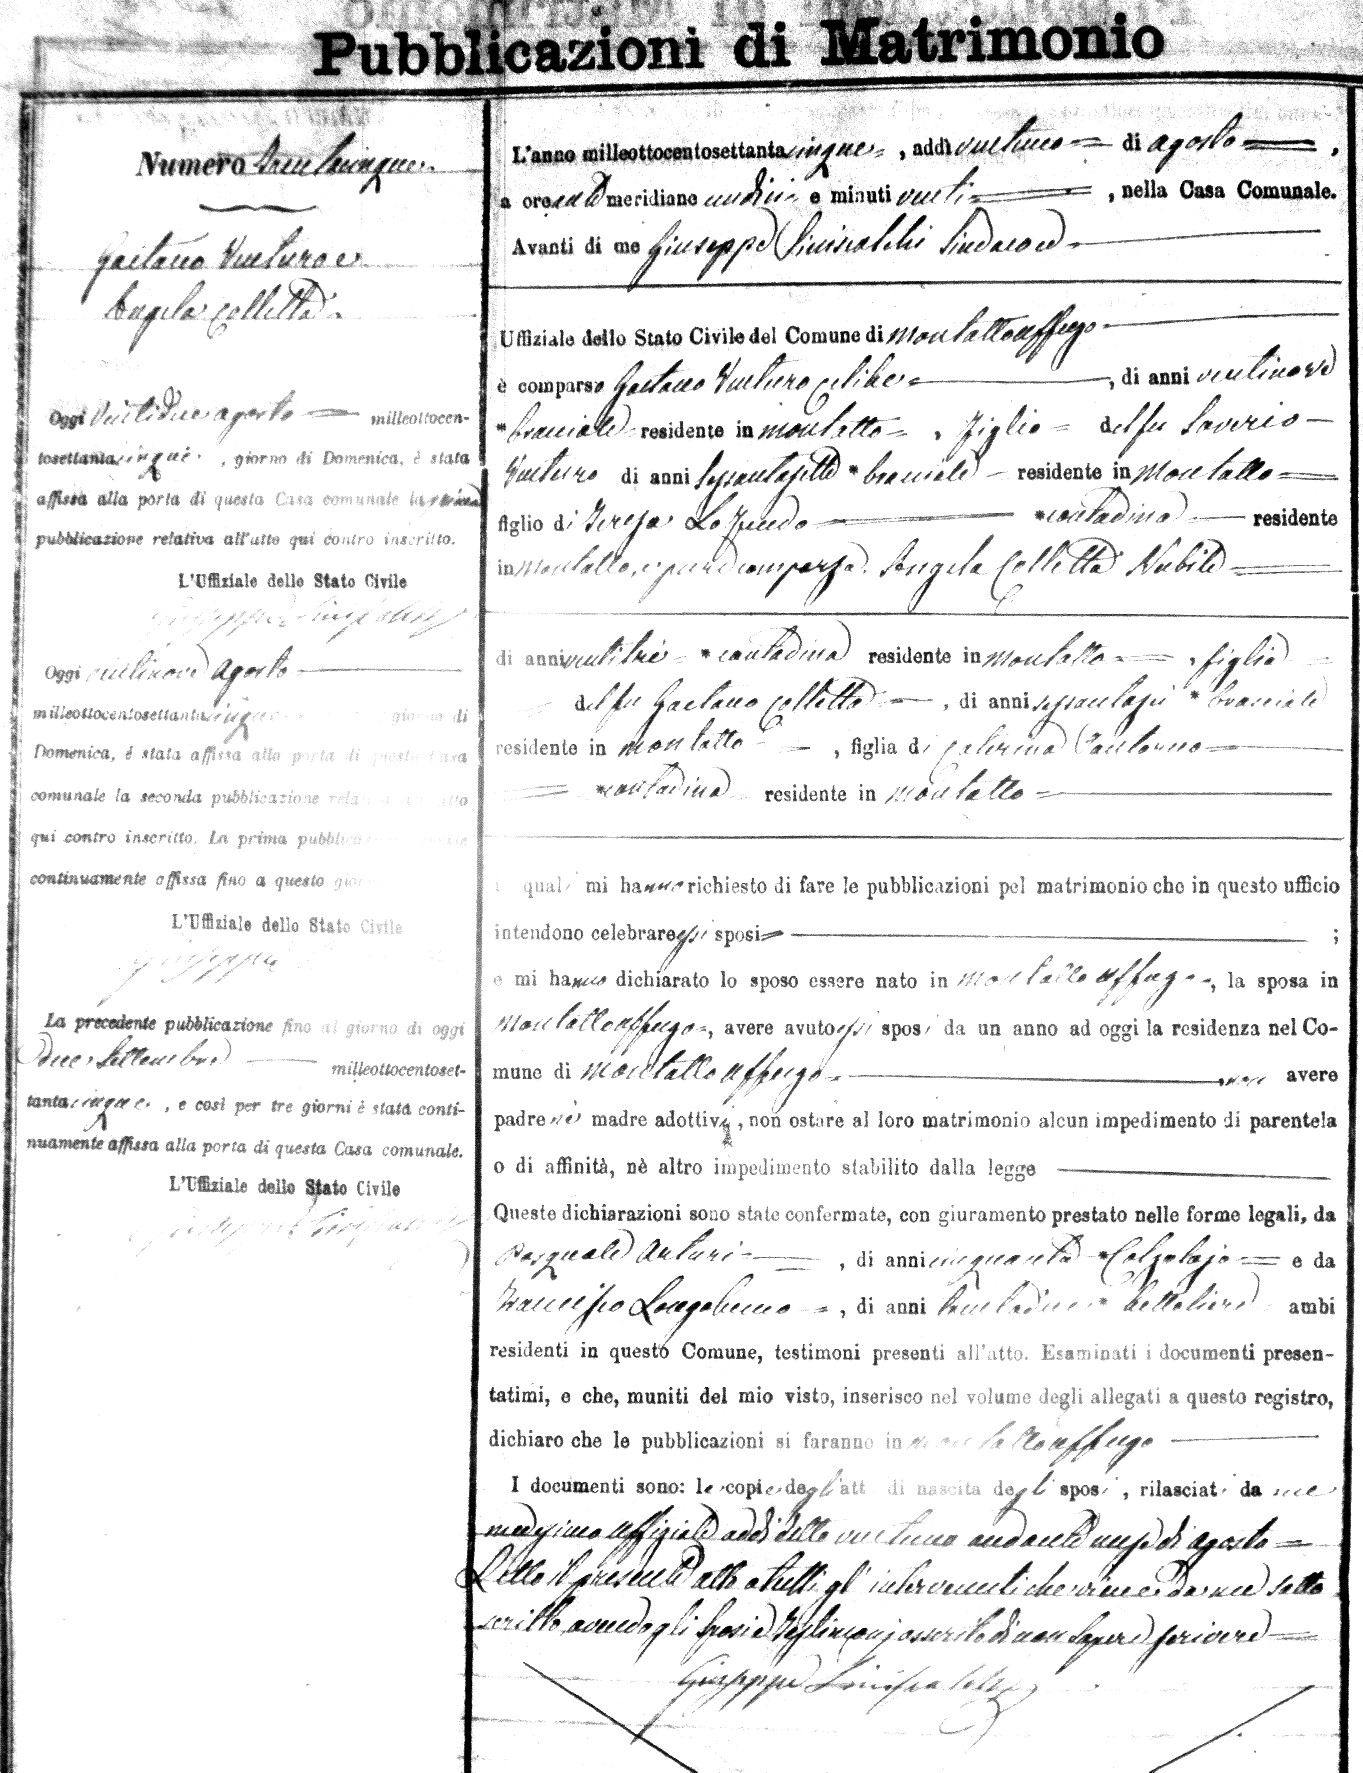 Pubblicazioni di Matrimonio
Numero trentacinque
Gaetano Venturo e
Angela Colletta
Oggi ventidue agosto milleottocen-
tosettantacinque, giorno di Domenica, è stata
affissa alla porta di questa Casa comunale la prima
pubblicazione relativa all'atto qui contro inscritto.
L'Uffiziale dello Stato Civile
Oggi ventinove Agosto
milleottocentosettantacinque giorno di
Domenica, è stata affissa alla porta di questa Casa
comunale la seconda pubblicazione relativa all'atto
qui contro inscritto. La prima pubblicazione
continuamente affissa fino a questo giorno
L'Uffiziale dello Stato Civile
Giuseppe
La precedente pubblicazione fino al giorno di oggi
due Settembre milleottocentoset-
tantacinque, e così per tre giorni è stata conti-
nuamente affissa alla porta di questa Casa comunale.
L'Uffiziale dello Stato Civile
L'anno milleottocentosettantacinque, addì ventuno di agosto,
a ore anti meridiane undici e minuti venti, nella Casa Comunale.
Avanti di me Giuseppe Siniscalchi Sindaco
Uffiziale dello Stato Civile del Comune di Montalto uffugo
è comparso Gaetano Venturo celibe, di anni ventinove
*bracciale residente in Montalto, figlio del fu Saverio
Venturo di anni sessantasette *bracciale residente in Montalto
figlio di Teresa *contadina residente
in Montalto, e pure comparsa Angela Colletta Nubile
di anni ventitrè *contadina residente in Montalto, figlia
del fu Gaetano Colletta, di anni sessantasei *bracciale
residente in Montalto, figlia di Caterina Santorno
*contadina residente in Montalto
i quali mi hanno richiesto di fare le pubblicazioni pel matrimonio che in questo ufficio
intendono celebrare essi sposi ;
e mi hanno dichiarato lo sposo essere nato in Montalto uffugo, la sposa in
Montalto uffugo, avere avuto essi sposi da un anno ad oggi la residenza nel Co-
mune di Montalto uffugo, non avere
padre nè madre adottivi, non ostare al loro matrimonio alcun impedimento di parentela
o di affinità, nè altro impedimento stabilito dalla legge
Queste dichiarazioni sono state confermate, con giuramento prestato nelle forme legali, da
Pasquale Arturi, di anni cinquanta *Calzolajo e da
Francesco Longobucco, di anni trentadue *bettoliere ambi
residenti in questo Comune, testimoni presenti all'atto. Esaminati i documenti presen-
tatimi, e che, muniti del mio visto, inserisco nel volume degli allegati a questo registro,
dichiaro che le pubblicazioni si faranno in Montalto uffugo
I documenti sono: le copie degli atti di nascita degli sposi, rilasciati da me
medesimo uffiziale addì detto ventuno andante mese di agosto
Letto il presente atto a tutti gl'intervenuti che viene da me sotto
scritto, avendo gli sposi e testimonj asserito di non sapere scrivere
Giuseppe Siniscalchi